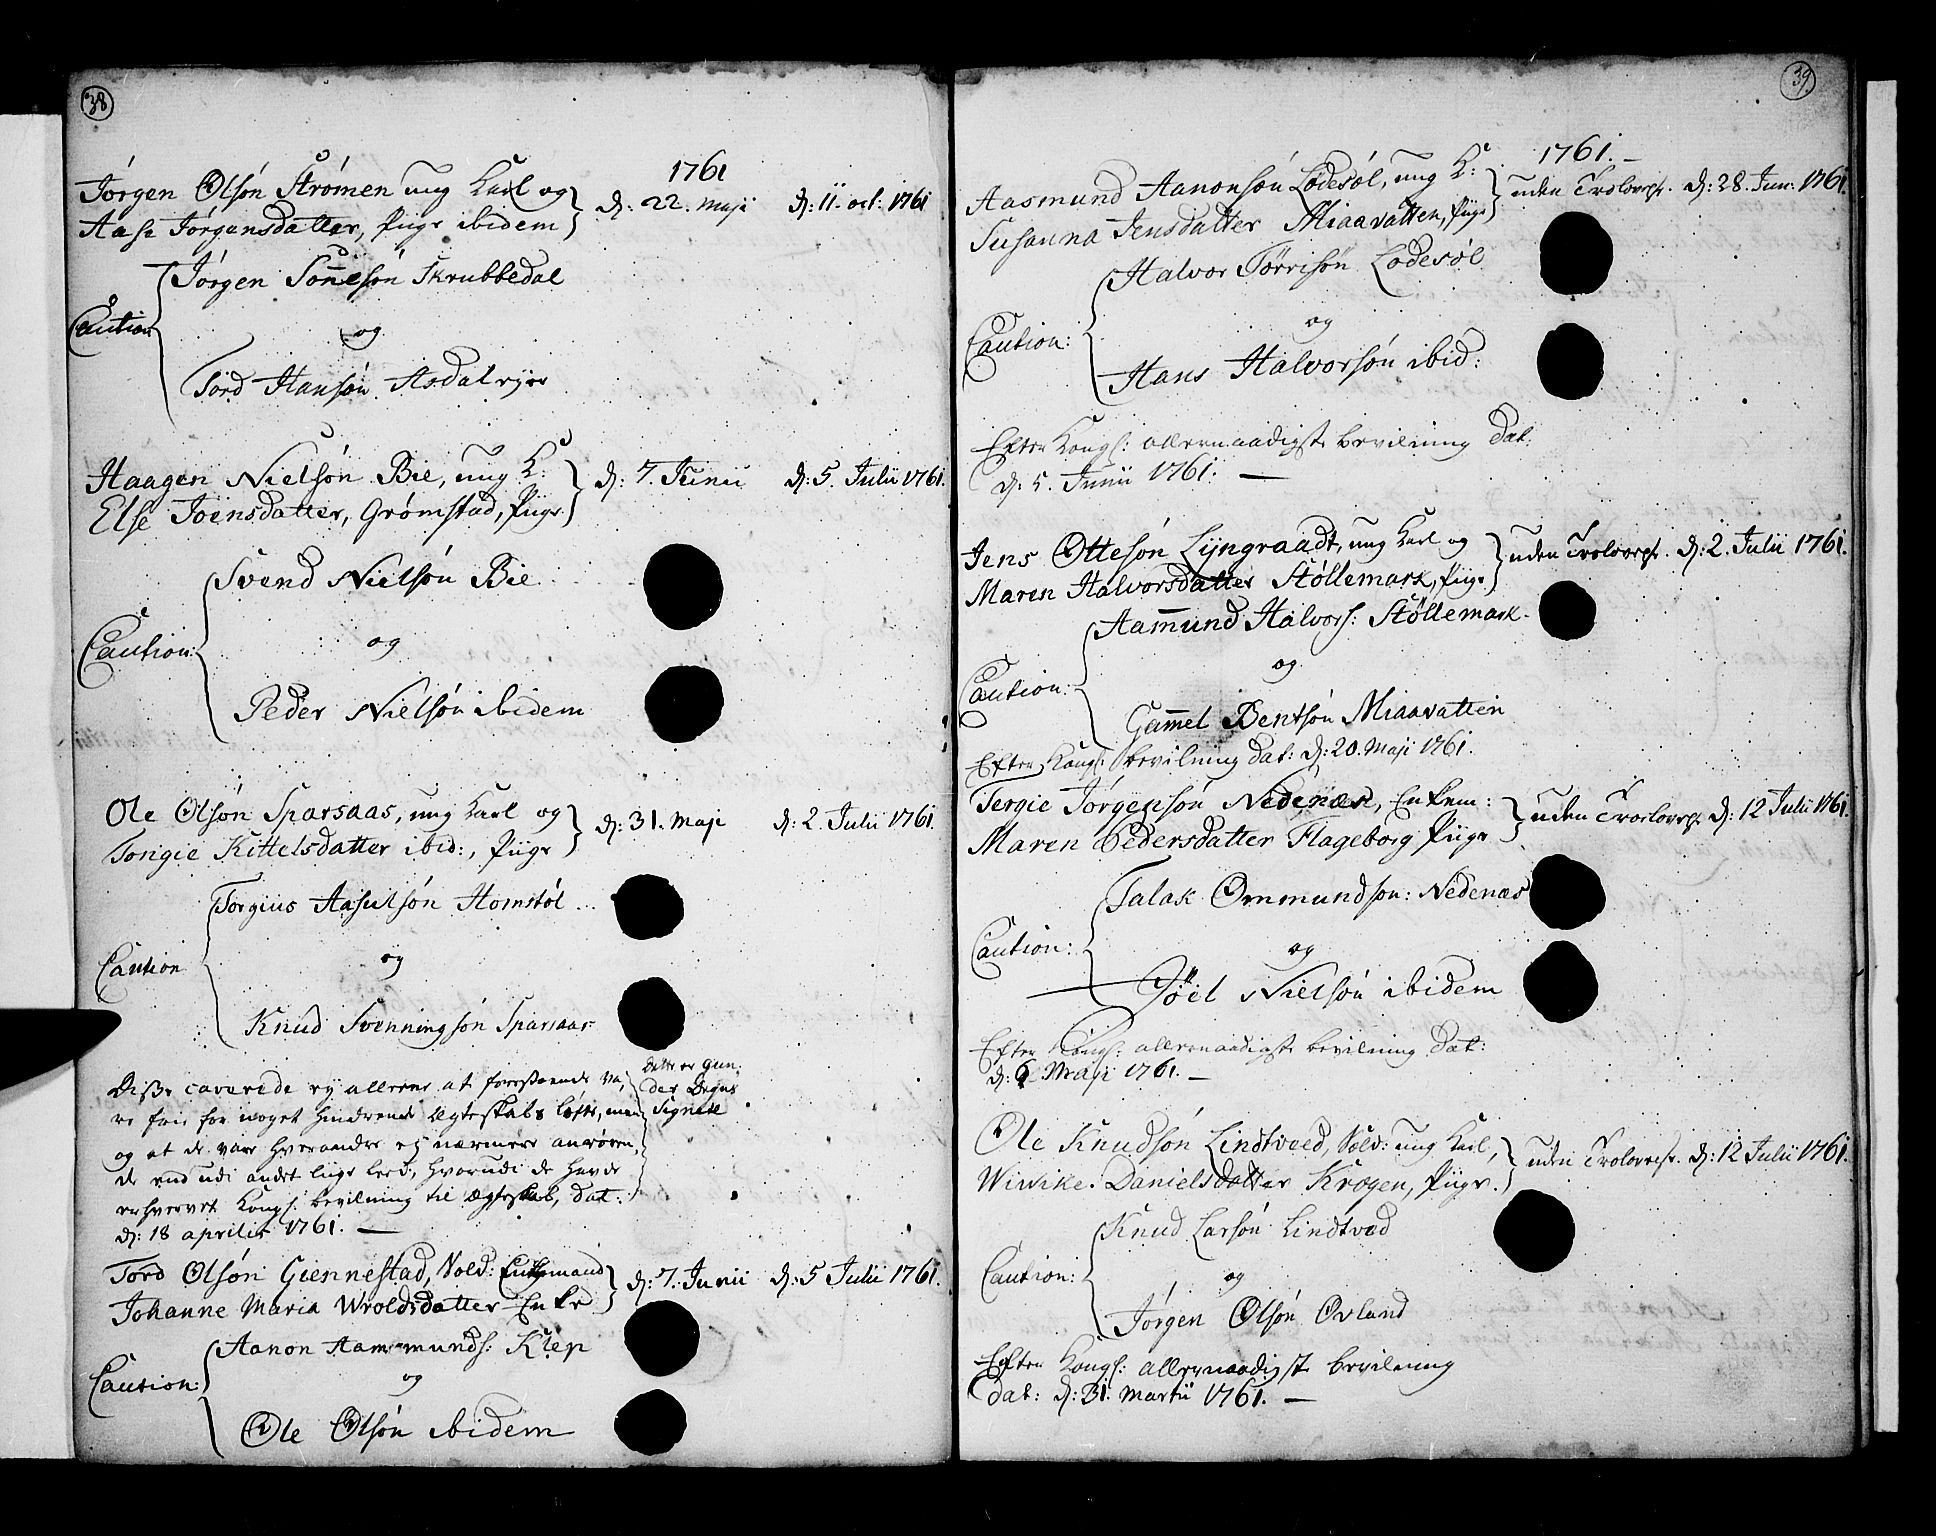 38
1761
Jørgen Olsøn Strømen ung Karl og
Aase Jørgensdatter, Piige ibidem
d: 22. Maji d: 11. oct: 1761
Jørgen Sonnesøn Skrubbedal
Caution
og
Tord Hansøn Asdal
Haagen Nielsøn Bie, ung K:
Else Joensdatter, Grømstad, Piige
d: 7. Junii d: 5. Julii 1761.
Svend Nielsøn Bie
Caution:
og
Peder Nielsøn ibidem
Ole Olsøn Sparsaas, ung Karl og
Torgie Kittelsdatter ibid:, Piige
d: 31. Maji d: 2. Julii 1761.
Torgius Aasulsøn Homstøl
Caution
og
Knud Svenningsøn Sparsaas
Diße caverede ej allene at forestaaende va-
re frie for noget hindrende Ægteskabs løfte, men
og at de vare hverandre ej nærmere anrørende,
de end udi andet liige leed, hvorudi de havde
erhvervet Kongl: bevilning til Ægteskab, dat:
d: 18 aprilis 1761. —
Dette er Gun-
der Degns
Signete
Tord Olsøn Giennestad, Sold: Enkemand
Johanne Maria Wroldsdatter Enke
d: 7. Junii d: 5 Julii 1761.
Aanon Aammunds: Klep
Caution:
og
Ole Olsøn ibidem
39
1761. —
Aasmund Aanonsøn Lødesøl, ung K:
Susanna Jensdatter Miaavatten, Piige
uden Trolovelse. d: 28. Jun: 1761.
Halvor Tørrisøn Lødesøl
Caution:
og
Hans Halvorsøn ibid:
Efter Kongl: allernaadigste bevilning dat:
d: 5. Junii 1761. —
Jens Ottesøn Lyngraadt, ung Karl og
Maren Halvorsdatter Støllemark, Piige
uden Trolovelse. d: 2. Julii 1761.
Aamund Halvors: Støllemark.
Caution:
og
Gammel Bentsøn Miaavatten
Efter Kongl: bevilning dat: d: 20. Maji 1761.
Tergie Jørgensøn Nedenæs, Enkem:
Maren Pedersdatter Flageborg Piige
uden Trolovelse d: 12 Julii 1761.
Talak Ommundson: Nedenæs
Caution:
og
Jöel Nielsøn ibidem
Efter Kongl: allernaadigste bevilning dat:
d: 6 Maji 1761. —
Ole Knudsøn Lindtveed, Sold: ung Karl,
Wiwike. Danielsdatter Krogen, Piige.
uden Trolovelse. d: 12 Julii 1761.
Knud Larsøn Lindtved
Caution:
og
Jørgen Olsøn Øvland
Efter Kongl: allernaadigst bevilning
dat: d: 31. Martii 1761. —